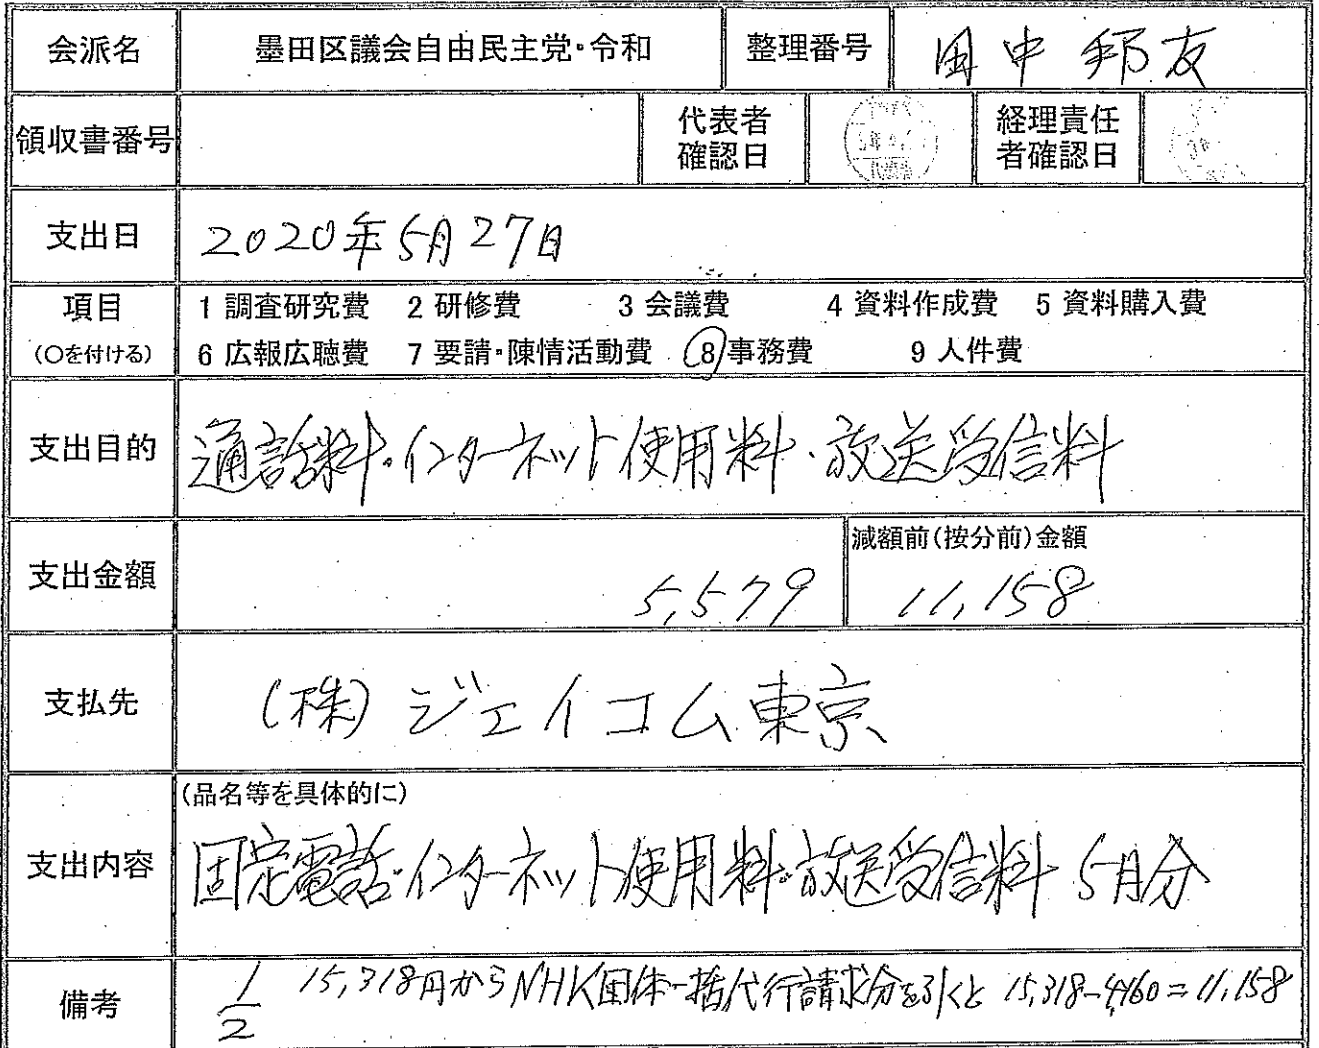 会派名 墨田区議会自由民主党・令和 整理番号 田中邦友
領収書番号 代表者確認日 経理責任者確認日
支出日 2020年5月27日
項目 1 調査研究費 2 研修費 3 会議費 4 資料作成費 5 資料購入費
(○を付ける) 6 広報広聴費 7 要請・陳情活動費 8 事務費 9 人件費
支出目的 通話料・インターネット使用料・放送受信料
減額前(按分前)金額
支出金額 5,579 11,158
支払先 (株)ジェイコム東京
(品名等を具体的に)
支出内容 固定電話・インターネット使用料・放送受信料 5月分
備考 1/2 15,318円からNHK団体一括代行請求分を引くと 15,318-4,160=11,158